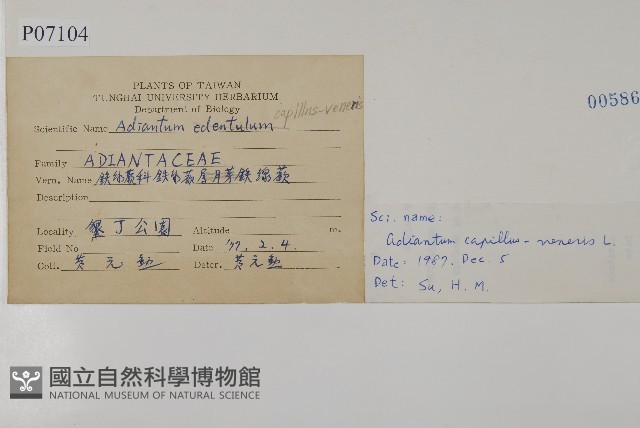 P07104
PLANTS OF TAIWAN
TUNGHAI UNIVERSITY HERBARIUM
Department of Biology
capillus-veneris
Scientific Name Adiantum edentulum
Family ADIANTACEAE
Vern. Name 鉄線蕨科 鉄線蕨屬 月芽鉄線蕨
Description
Locality 墾丁公園 Altitude m.
Field No Date '77. 2. 4.
Coll. 黃元勳 Deter. 黃元勳
00586
Sci. name:
Adiantum capillus-veneris L.
Date: 1987. Dec. 5
Det: Su, H. M.
國立自然科學博物館
NATIONAL MUSEUM OF NATURAL SCIENCE